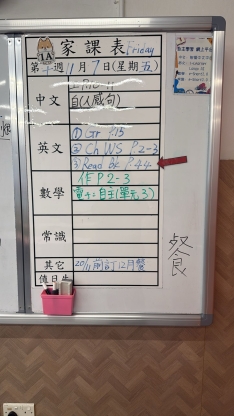 1A 家課表 Friday
第十週11月7日(星期五)
中文
自(人威句)
英文
① Gr P.15
② Ch WS P.2-3
③ Read bk P.44
數學
作 P.2-3
電+:自主(單元3)
常識
其它
20/11前訂12月餐
值日生
餐